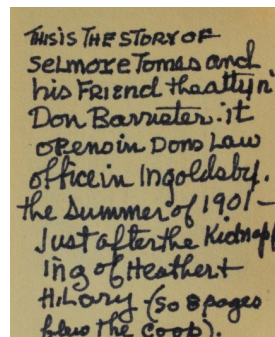 THIS IS THE STORY OF
Selmore Tomes and
his FRIEND the atty
Don Barrister. it
OPENS in Dons Law
office in Ingoldsby.
the Summer of 1901 -
Just after the Kidnapp
ing of Heather +
Hilary - (so 8 pages
blew the coop).